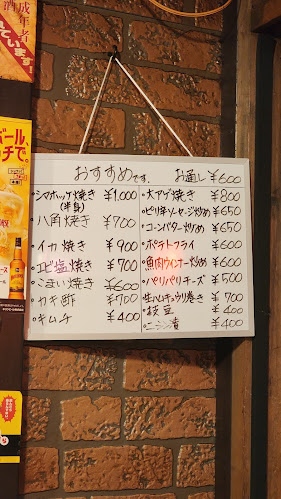 酒
成年者
ています!
ボール、
チで。
おすすめです。 お通し ¥600
・シマホッケ焼き ¥1,000
(半身)
・八角焼き ¥700
・イカ焼き ¥900
・エビ塩焼き ¥700
・こまい焼き ¥600
・カキ酢 ¥700
・キムチ ¥400
・大アゲ焼き ¥800
・ピリ辛ソーセージ炒め ¥650
・コーンバター炒め ¥650
・ポテトフライ ¥600
・魚肉ウインナー炒め ¥600
・パリパリチーズ ¥500
・生ハムキュウリ巻き ¥700
・枝豆 ¥400
・ニシン漬 ¥400